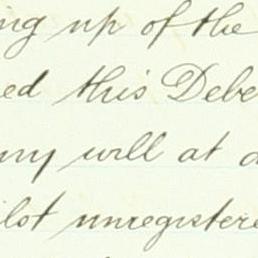 ing up of the
ed this Debe
ny will at a
ilst unregistere